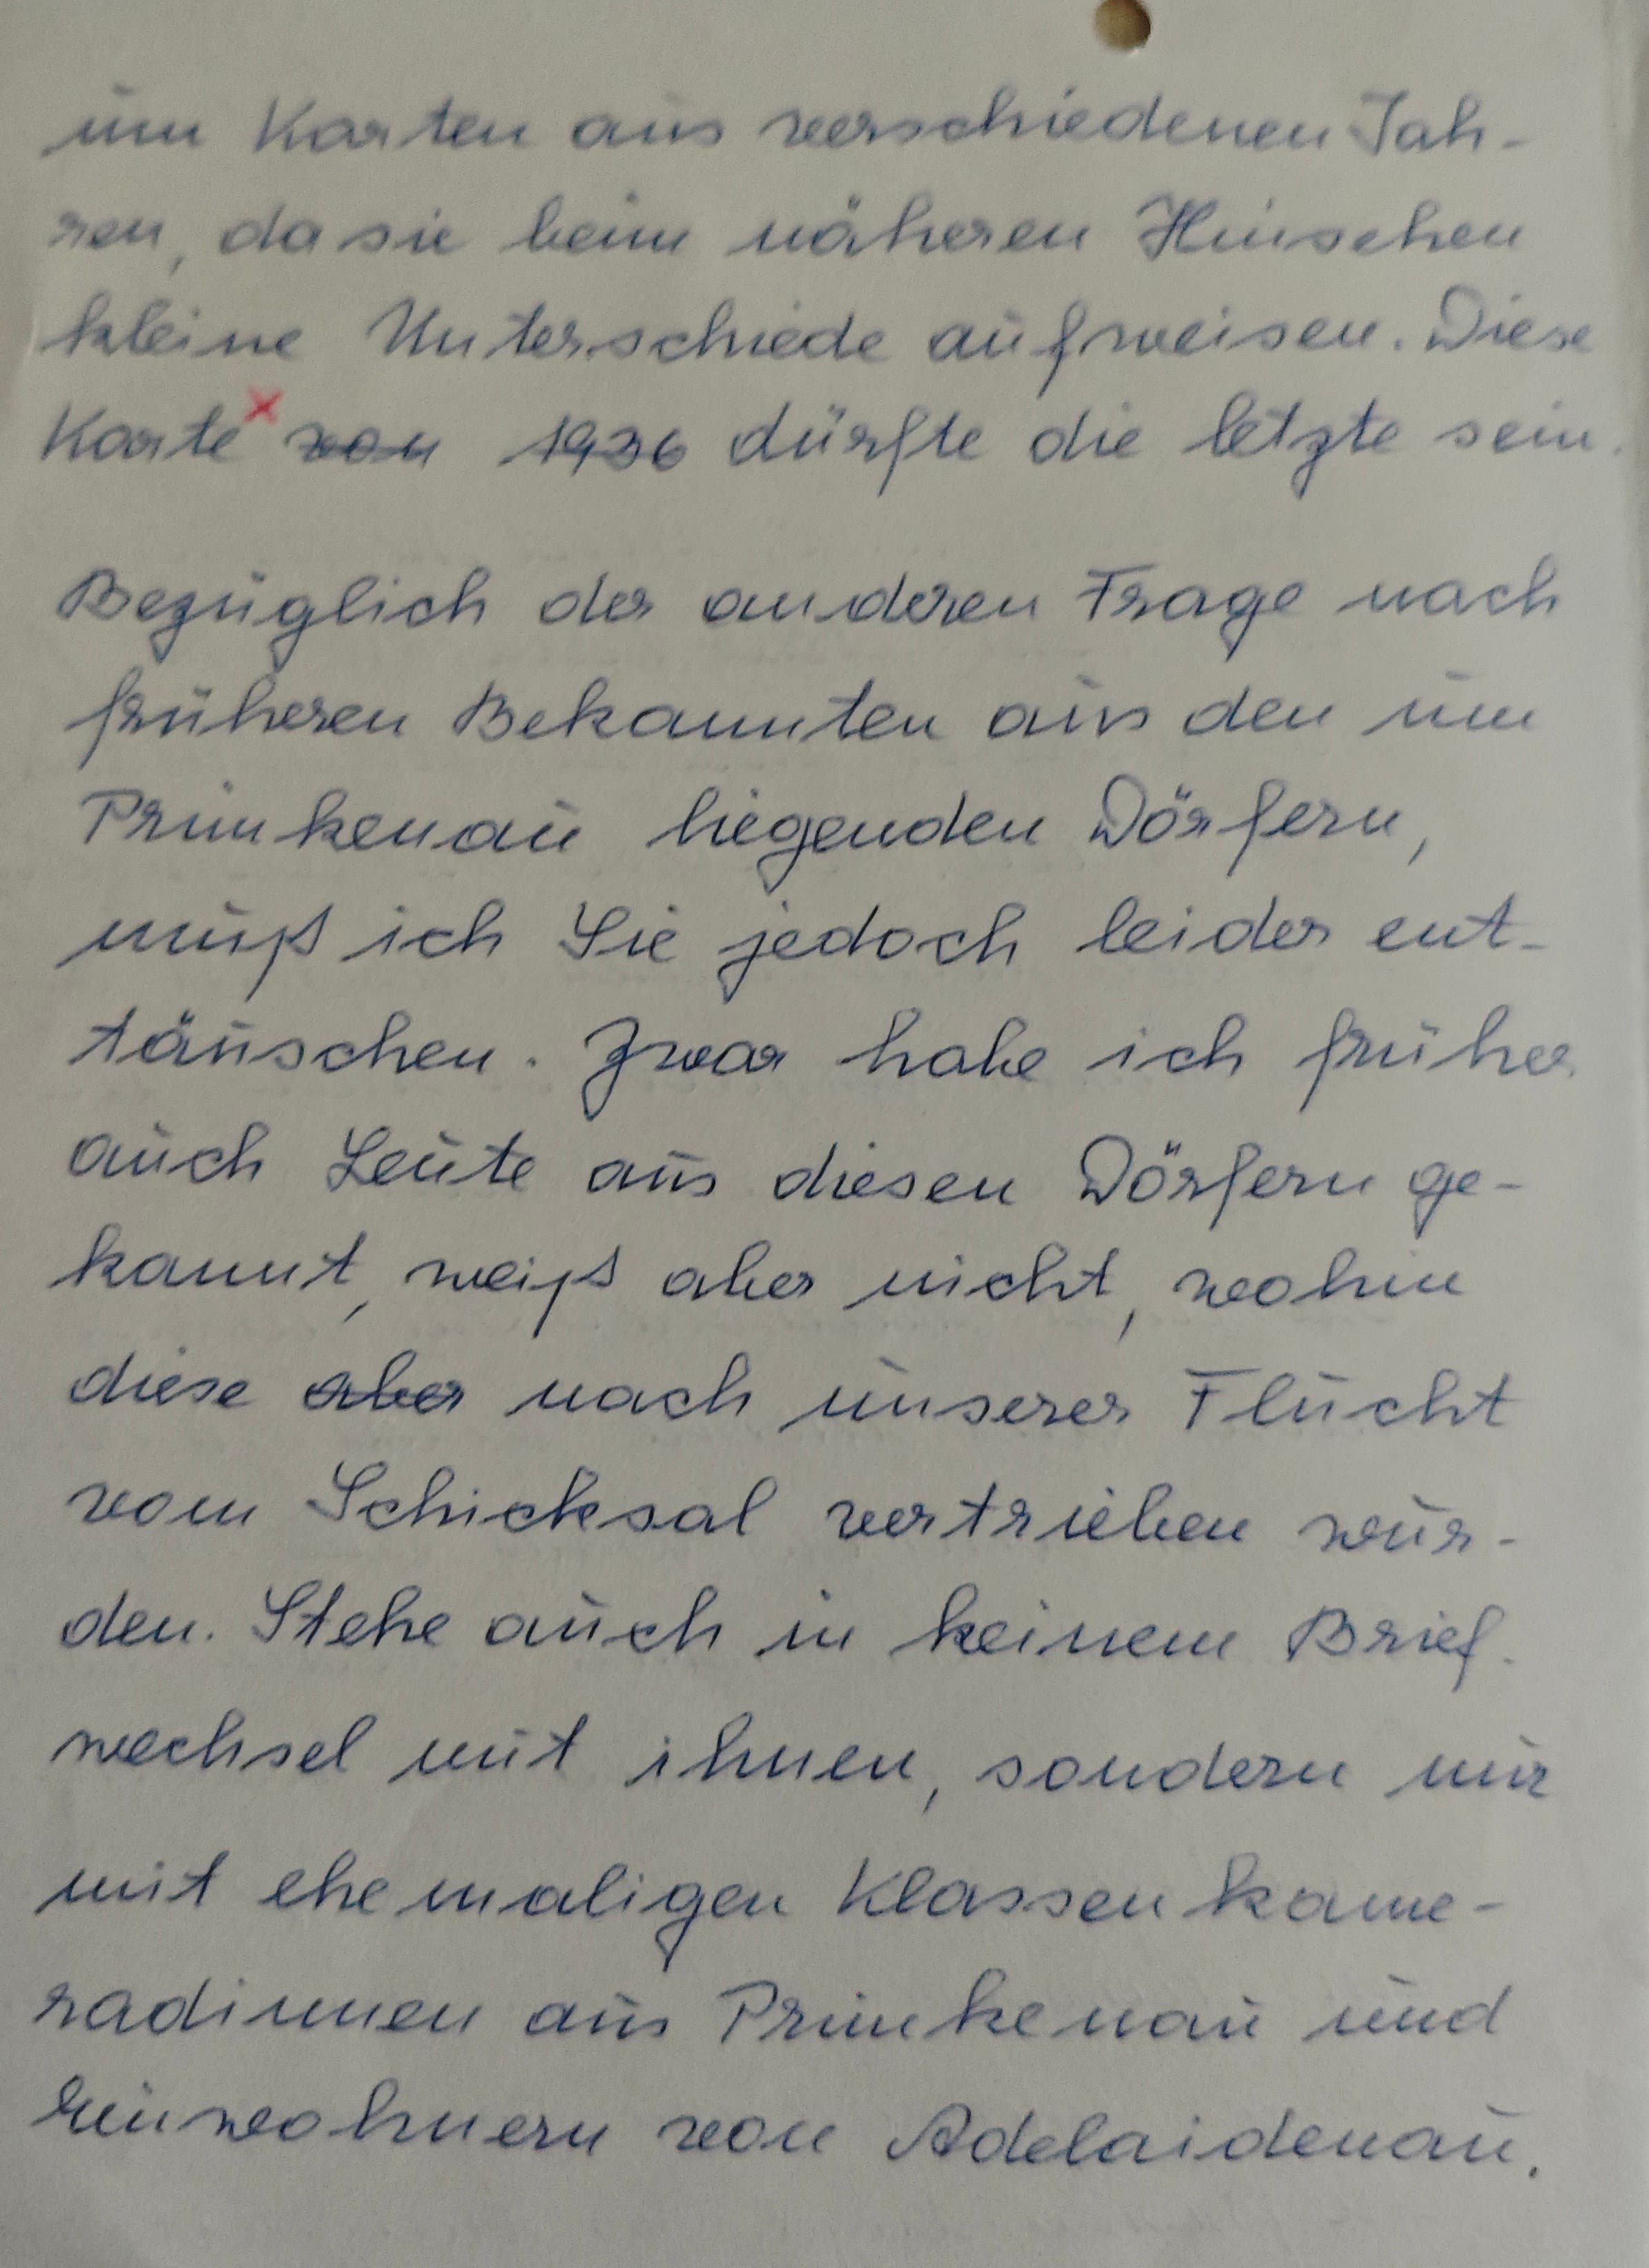 um Karten aus verschiedenen Jah-
ren, da sie beim näheren Hinsehen
kleine Unterschiede aufweisen. Diese
Karte x von 1936 dürfte die letzte sein.
Bezüglich der anderen Frage nach
früheren Bekannten aus den um
Primkenau liegenden Dörfern,
muß ich Sie jedoch leider ent-
täuschen. Zwar habe ich früher
auch Leute aus diesen Dörfern ge-
kannt, weiß aber nicht, wohin
diese aber nach unserer Flucht
vom Schicksal vertrieben wur-
den. Stehe auch in keinem Brief-
wechsel mit ihnen, sondern nur
mit ehemaligen Klassenkame-
radinnen aus Primkenau und
Einwohnern von Adelaidenau.